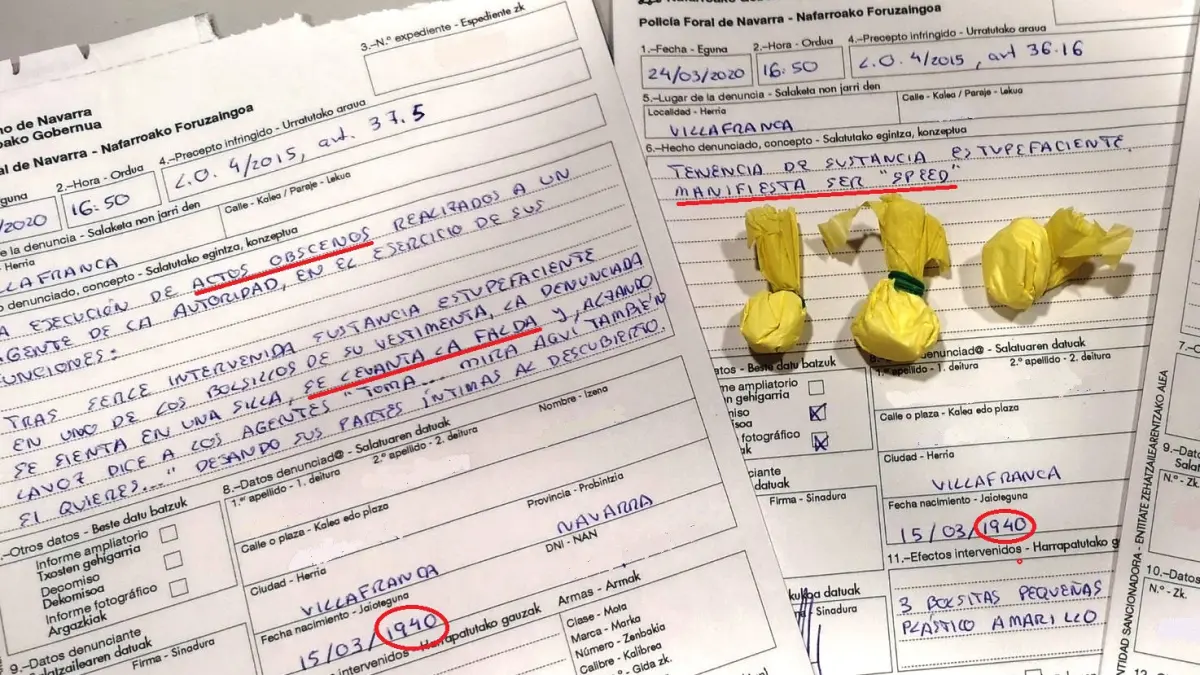 3.–N.º expediente - Espediente zk
no de Navarra
ako Gobernua
al de Navarra - Nafarroako Foruzaingoa
guna
2.–Hora - Ordua
4.–Precepto infringido - Urratutako araua
/2020
16:50
L.O. 4/2015, art. 37.5
de la denuncia - Salaketa non jarri den
Calle - Kalea / Paraje - Lekua
Herria
LLAFRANCA
denunciado, concepto - Salatutako egintza, kontzeptua
A EJECUCIÓN DE ACTOS OBSCENOS REALIZADOS A UN
AGENTE DE LA AUTORIDAD, EN EL EJERCICIO DE SUS
UNCIONES:
TRAS SERLE INTERVENIDA SUSTANCIA ESTUPEFACIENTE
EN UNO DE LOS BOLSILLOS DE SU VESTIMENTA, LA DENUNCIADA
SE SIENTA EN UNA SILLA, SE LEVANTA LA FALDA Y, ALZANDO
LA VOZ DICE A LOS AGENTES "TOMA... MIRA AQUÍ TAMBIÉN
SI QUIERES..." DEJANDO SUS PARTES ÍNTIMAS AL DESCUBIERTO.
–Otros datos - Beste datu batzuk
Informe ampliatorio
Txosten gehigarria
Decomiso
Dekomisoa
Informe fotográfico
Argazkiak
9.–Datos denunciante
Salatzailearen datuak
Firma - Sinadura
8.–Datos denunciad@ - Salatuaren datuak
1.º apellido - 1. deitura
2.º apellido - 2. deitura
Nombre - Izena
Calle o plaza - Kalea edo plaza
Provincia - Probintzia
NAVARRA
Ciudad - Herria
VILLAFRANCA
DNI - NAN
Fecha nacimiento - Jaioteguna
15/03/1940
intervenidos - Harrapatutako gauzak
Armas - Armak
Clase - Mota
Marca - Marka
Número - Zenbakia
Calibre - Kalibrea
N.º - Gida zk.
Policía Foral de Navarra - Nafarroako Foruzaingoa
1.–Fecha - Eguna
2.–Hora - Ordua
4.–Precepto infringido - Urratutako araua
24/03/2020
16:50
L.O. 4/2015, art 36.16
5.–Lugar de la denuncia - Salaketa non jarri den
Localidad - Herria
Calle - Kalea / Paraje - Lekua
VILLAFRANCA
6.–Hecho denunciado, concepto - Salatutako egintza, konzeptua
TENENCIA DE SUSTANCIA ESTUPEFACIENTE.
MANIFIESTA SER "SPEED"
atos - Beste datu batzuk
me ampliatorio
ten gehigarria
miso
isoa
fotográfico
ak
nciante
datuak
Firma - Sinadura
enunciad@ - Salatuaren datuak
1.º apellido - 1. deitura
2.º apellido - 2. deitura
Calle o plaza - Kalea edo plaza
Ciudad - Herria
VILLAFRANCA
Fecha nacimiento - Jaioteguna
15/03/1940
11.–Efectos intervenidos - Harrapatutako g
datuak
Sinadura
3 BOLSITAS PEQUEÑAS
PLÁSTICO AMARILLO
ENTIDAD SANCIONADORA - ENTITATE ZEHATZAILEARENTZAKO ALEA
7.–
9.–Dato
Salat
N.º - Zk
10.–Datos
N.º - Zk.